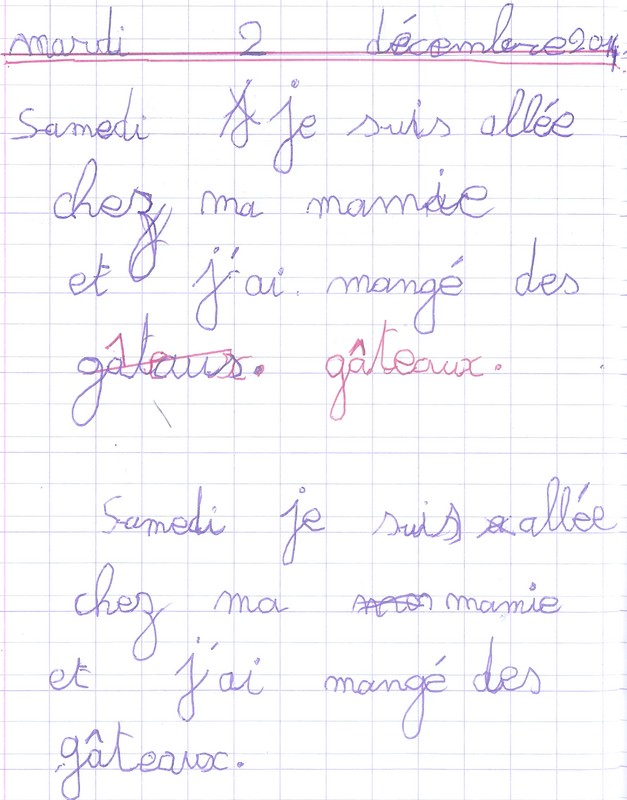 mardi 2 décembre 2014
Samedi je suis allée
chez ma mamie
et j'ai mangé des
gâtaux. gâteaux.
Samedi je suis allée
chez ma mamie
et j'ai mangé des
gâteaux.